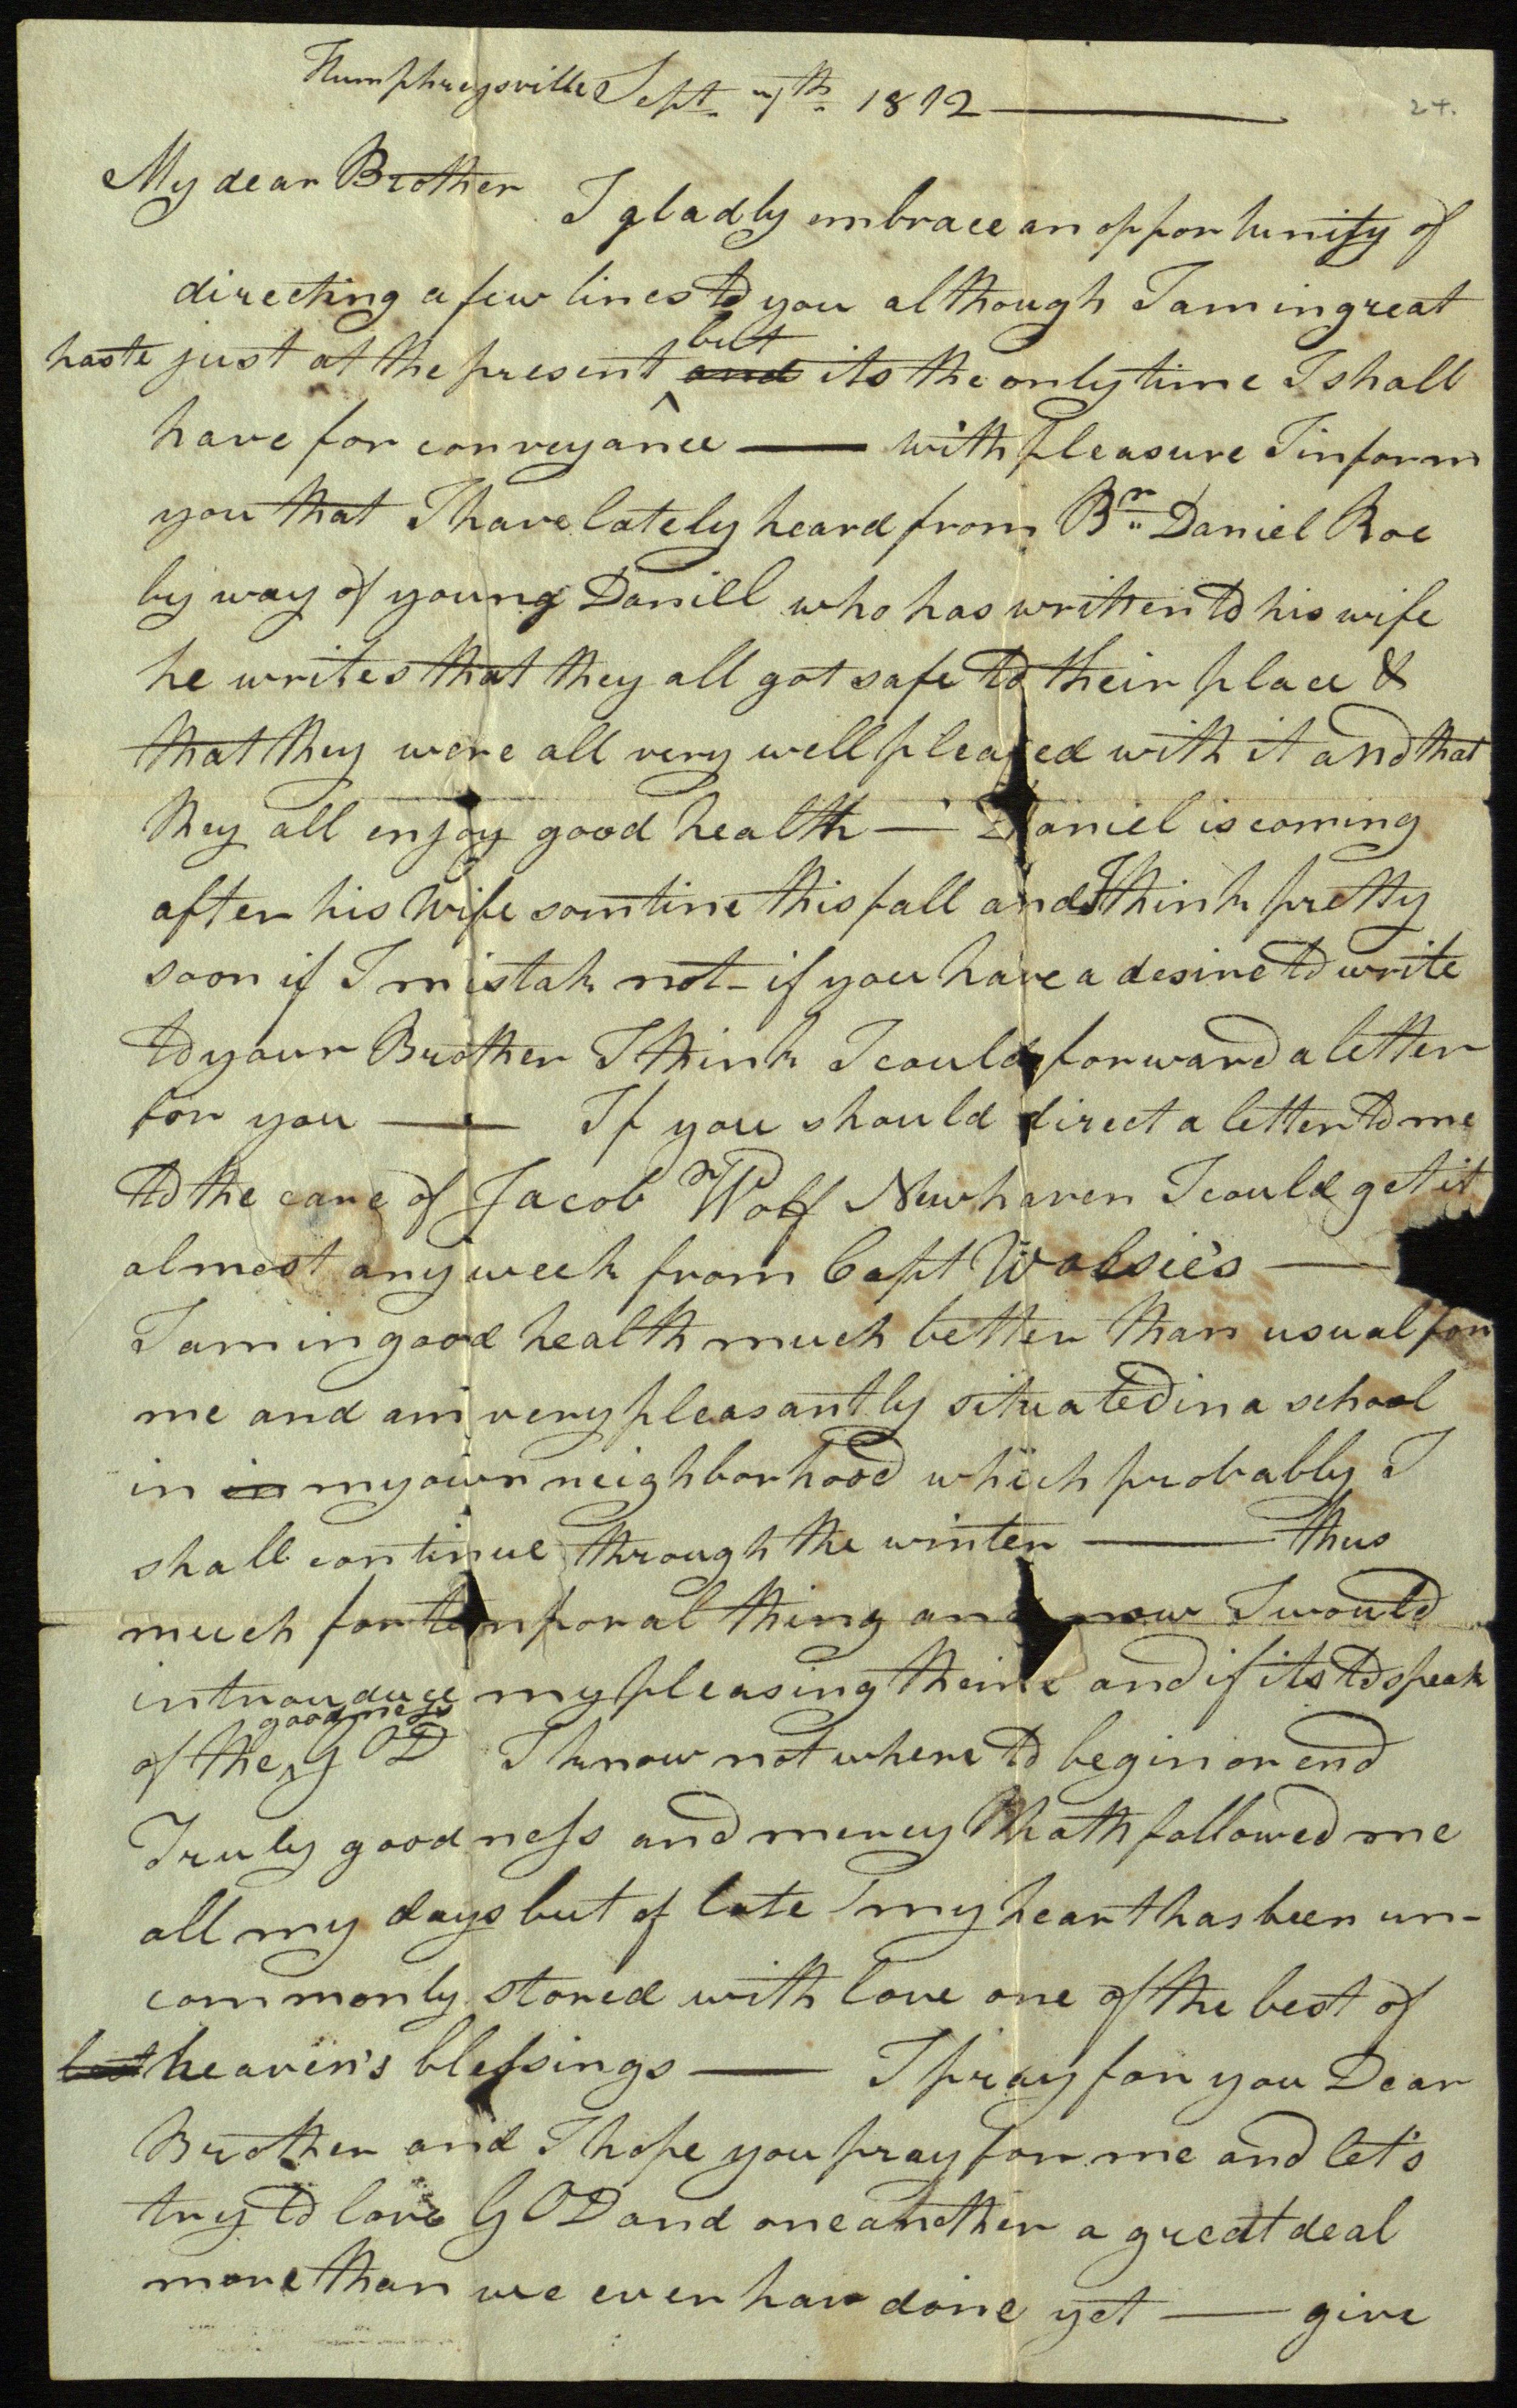 Humphreysville Sept 7th 1812
24.
My dear Brother I gladly embrace an opportunity of
directing a few lines to you although I am in great
haste just at the present but and its the only time I shall
have for conveyance — with pleasure I inform
you that I have lately heard from Br Daniel Roe
by way of young Daniell who has written to his wife
he writes that they all got safe to their place &
that they were all very well pleased with it and that
they all enjoy good health — Daniel is coming
after his wife somtine this fall and I think pretty
soon if I mistak not - if you have a desire to write
to your Brother I think I could forward a letter
for you — If you should direct a letter to me
to the care of Jacob Wolf Newhaven I could get it
almost any week from Capt Wolsie's —
I am in good health much better than usual for
me and am very pleasantly situated in a school
in in my own neighborhood which probably I
shall continue through the winter — thus
much for temporal thing and now I would
my pleasing theme and if its to speak
of the goodness GOD I know not where to begin or end
Truly goodness and mercy hath followed me
all my days but of late my heart has been un-
commonly stored with love one of the best of
best heaven's blessings — I pray for you Dear
Brother and I hope you pray for me and let's
try to love GOD and one another a great deal
more than we ever hav done yet — give